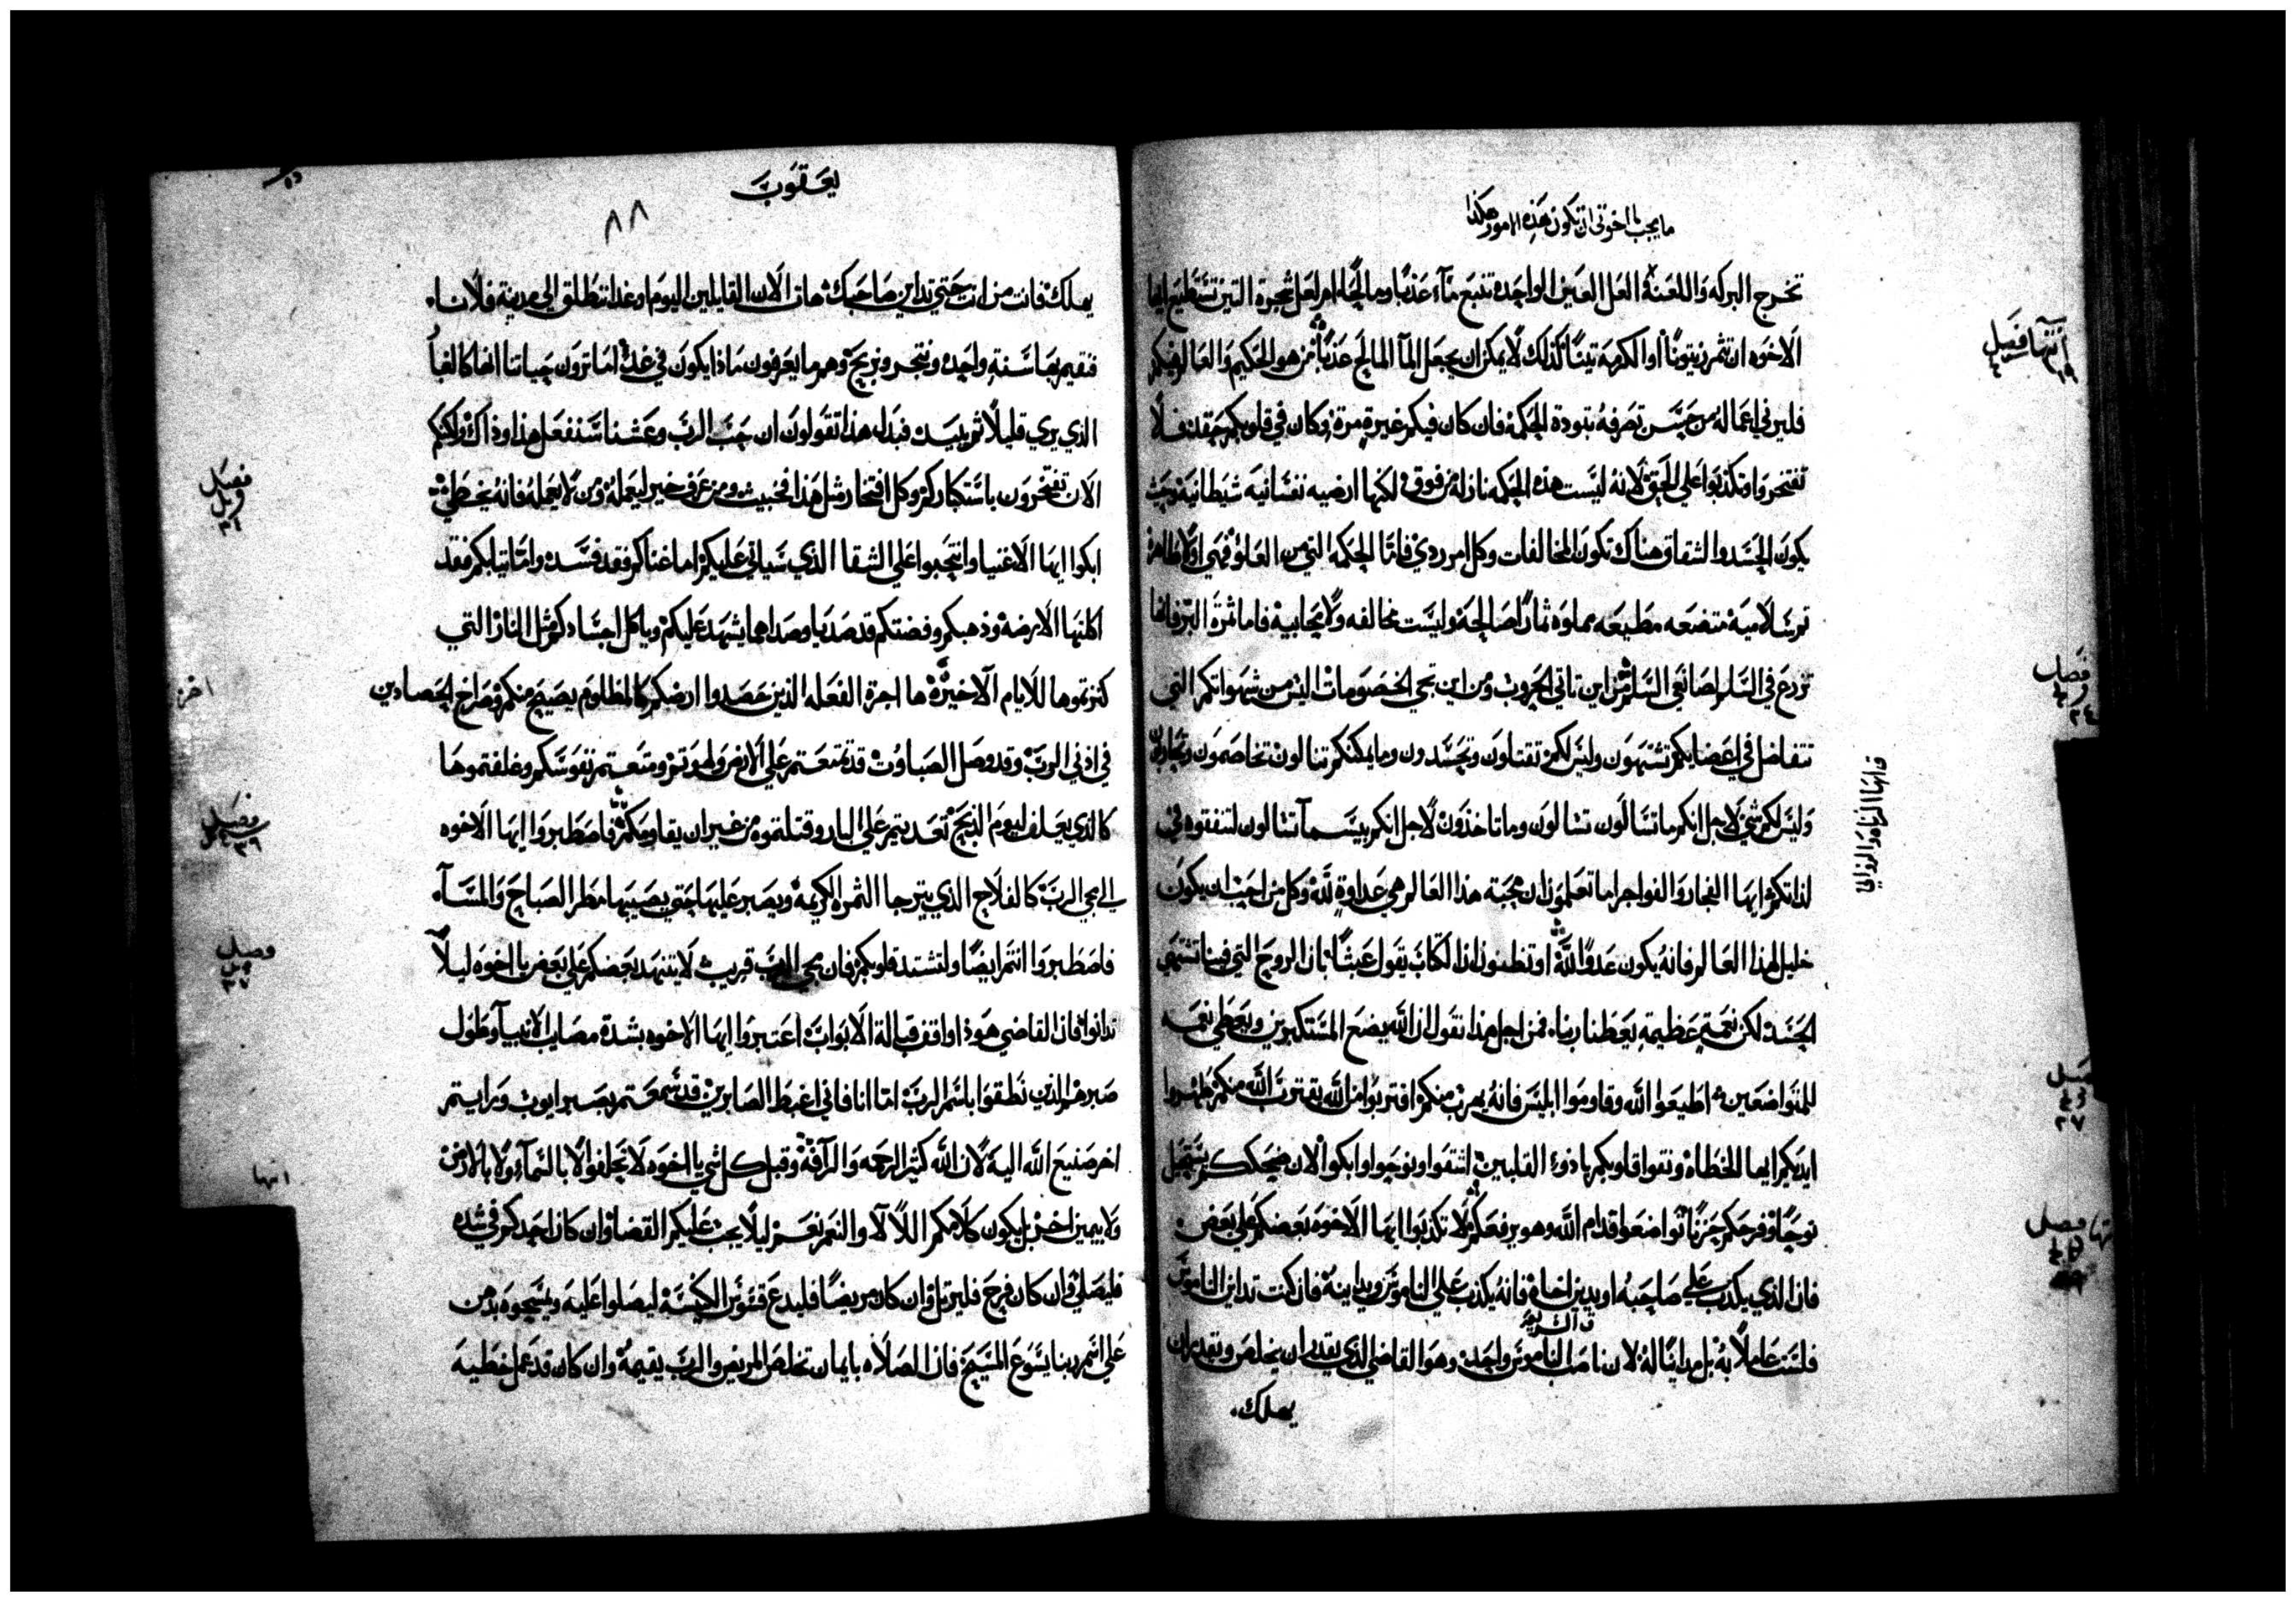 ما يجب يا اخوتي ان تكون هذه الامور هكذا
تخرج البركه واللعنة العل العين الواحده تنبع مآء عذبًا ومالحًا ام لعل شجرة التين تستطيع ايها
الاخوه ان تثمر زيتونًا او الكرمة تينًا كذلك لا يمكن ان يجعل المآ المالح عذبًا من هو الحكيم والعالم فيكم
فلير في اعماله من حسن تصرفه بتودة الحكمة فان كان فيكم غيرة مرة وكان في قلوبكم حقد فلا
تفتخروا وتكذبوا علي الحق لانه ليست هذه الحكمه نازله من فوق لكنها ارضيه نفسانية شيطانية وحيث
يكون الحسد والشقاق هناك تكون المخالفات وكل امر ردي فاما الحكمه التي من العلو فهي اولا طاهرة
ثم سلامية متضعه مطيعه مملوه ثمارًا صالحة وليست مخالفه ولا محابية فاما ثمرة البر فانها
تزرع في السلم لصانعي السلم من اين تاتي الحروب ومن اين تجي الخصومات اليس من شهواتكم التي
تتفاضل في اعضايكم تشتهون وليس لكم تقتلون وتحسدون وما يمكنكم تنالون تخاصمون وتحاربون
وليس لكم شي لاجل انكم ما تسالون تسالون وما تاخذون لاجل انكم بيسما تسالون لتنفقوه في
لذاتكم ايها الفجار والفواجر اما تعلمون ان محبة هذا العالم هي عداوة لله وكل من احب ان يكون
خليل لهذا العالم فانه يكون عدوًا لله او تظنون ان الكتاب يقول عبثًا بان الروح التي فينا تشتهي
الجسد لكن نعمة عظيمة يعطنا ربنا فمن اجل هذا نقول ان الله يضع المستكبرين ويعطي نعمه
للمتواضعين اطيعوا الله وقاوموا ابليس فانه يهرب منكم اقتربوا من الله يقترب الله منكم طهروا
ايديكم ايها الخطاه ونقوا قلوبكم يا ذوي القلبين اشقوا ونوحوا وابكوا الان ضحككم يستحيل
نوحًا وفرحكم حزنًا تواضعوا قدام الله وهو يرفعكم لا تكذبوا ايها الاخوة بعضكم علي بعض
فان الذي يكذب علي صاحبه او يدين اخاه فانه يكذب علي الناموس ويداينه فان كنت تداين الناموس
فلست عاملًا به بل مداينًا له لان ناصب الناموس واحد وهو القاضي الذي يقدر ان يخلص ويقدر ان
يهلك
انتها فصل
فصل
٣٤
فصل
٣٧
انتها فصل
يعقوب
٨٨
يهلك فانت من انت حتي تداين صاحبك هات الان القايلين اليوم او غدا ننطلق الي مدينة فلانا
فنقيم بها سنة واحده ونتجر ونربح وهم ما يعرفون ماذا يكون في غد اما ترون حياتنا انها كالغبا
الذي يري قليلًا ثم يبيد فبدل هذا تقولون ان حب الرب وعشنا سنفعل هذا وذاك ولكنكم
الان تفتخرون باستكباركم وكل افتخار مثل هذا فخبيث ومن عرف خير ليعمله ومن لا يعمله فانه يخطي
ابكوا ايها الاغنيا وانتحبوا علي الشقا الذي سياتي عليكم اما غناكم فقد فسد واما ثيابكم فقد
اكلتها الارضة وذهبكم وفضتكم قد صديا وصداهما يشهد عليكم وياكل اجسادكم مثل النار التي
كنزتموها للايام الاخيرة ها اجرة الفعله الذين حصدوا ارضكم كالمظلوم يصيح منكم وصراخ الحصادين
في اذني الرب وقد وصل الصباوت قد تمتعتم علي الارض ولهوتم ومتعتم نفوسكم وعلفتموها
كالذي يعلف ليوم الذبح تعديتم علي البار وقتلتموه من غير ان يقاومكم فاصطبروا ايها الاخوه
الي مجي الرب كالفلاح الذي يترجا الثمره الكريمه ويصبر عليها حتي يصيبها مطر الصباح والمسآ
فاصطبروا انتم ايضًا ولتشتد قلوبكم فان مجي الرب قريب لا يتنهد بعضكم علي بعض يا اخوه ليلا
تدانوا فان القاضي هوذا واقف قبالة الابواب اعتبروا ايها الاخوه بشدة مصايب الانبيآ وطول
صبرهم الذين نطقوا باسم الرب اما انا فاني اغبط الصابرين قد سمعتم بصبر ايوب ورايتم
اخر صنيع الله اليه لان الله كثير الرحمه والرآفة وقبل كل شي يا اخوه لا تحلفوا لا بالسمآء ولا بالارض
ولا بيمين اخر بل يكون كلامكم اللا لا والنعم نعم ليلا يجب عليكم القضا وان كان احدكم في شده
فليصلي وان كان فرح فليرتل وان كان مريضًا فليدع قسوس الكنيسه ليصلوا عليه ويمسحوه بدهن
علي اسم ربنا يسوع المسيح فان الصلاه بايمان تخلص المريض والرب يقيمه وان كان قد عمل خطيه
فصل
فصل
٣٦
فصل
٣٧
اخر
انتها